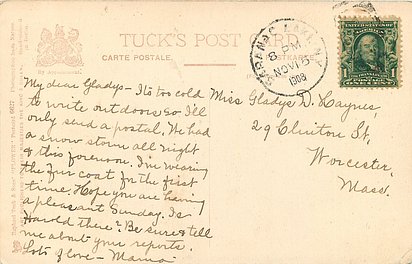 TUCK'S POST CARD
CARTE POSTALE.
SARANAC LAKE, N.Y.
8 PM
NOV 15
1908
1
My dear Gladys - It's too cold
to write out doors so I'll
only send a postal. We had
a snow storm all night
& this forenoon. I'm wearing
the fur coat for the first
time. Hope you are having
a pleasant Sunday. Is
Harold there? Be sure & tell
me about your reports.
Lots of love - Mama
Miss Gladys D. Haynes,
29 Clinton St,
Worcester,
Mass.